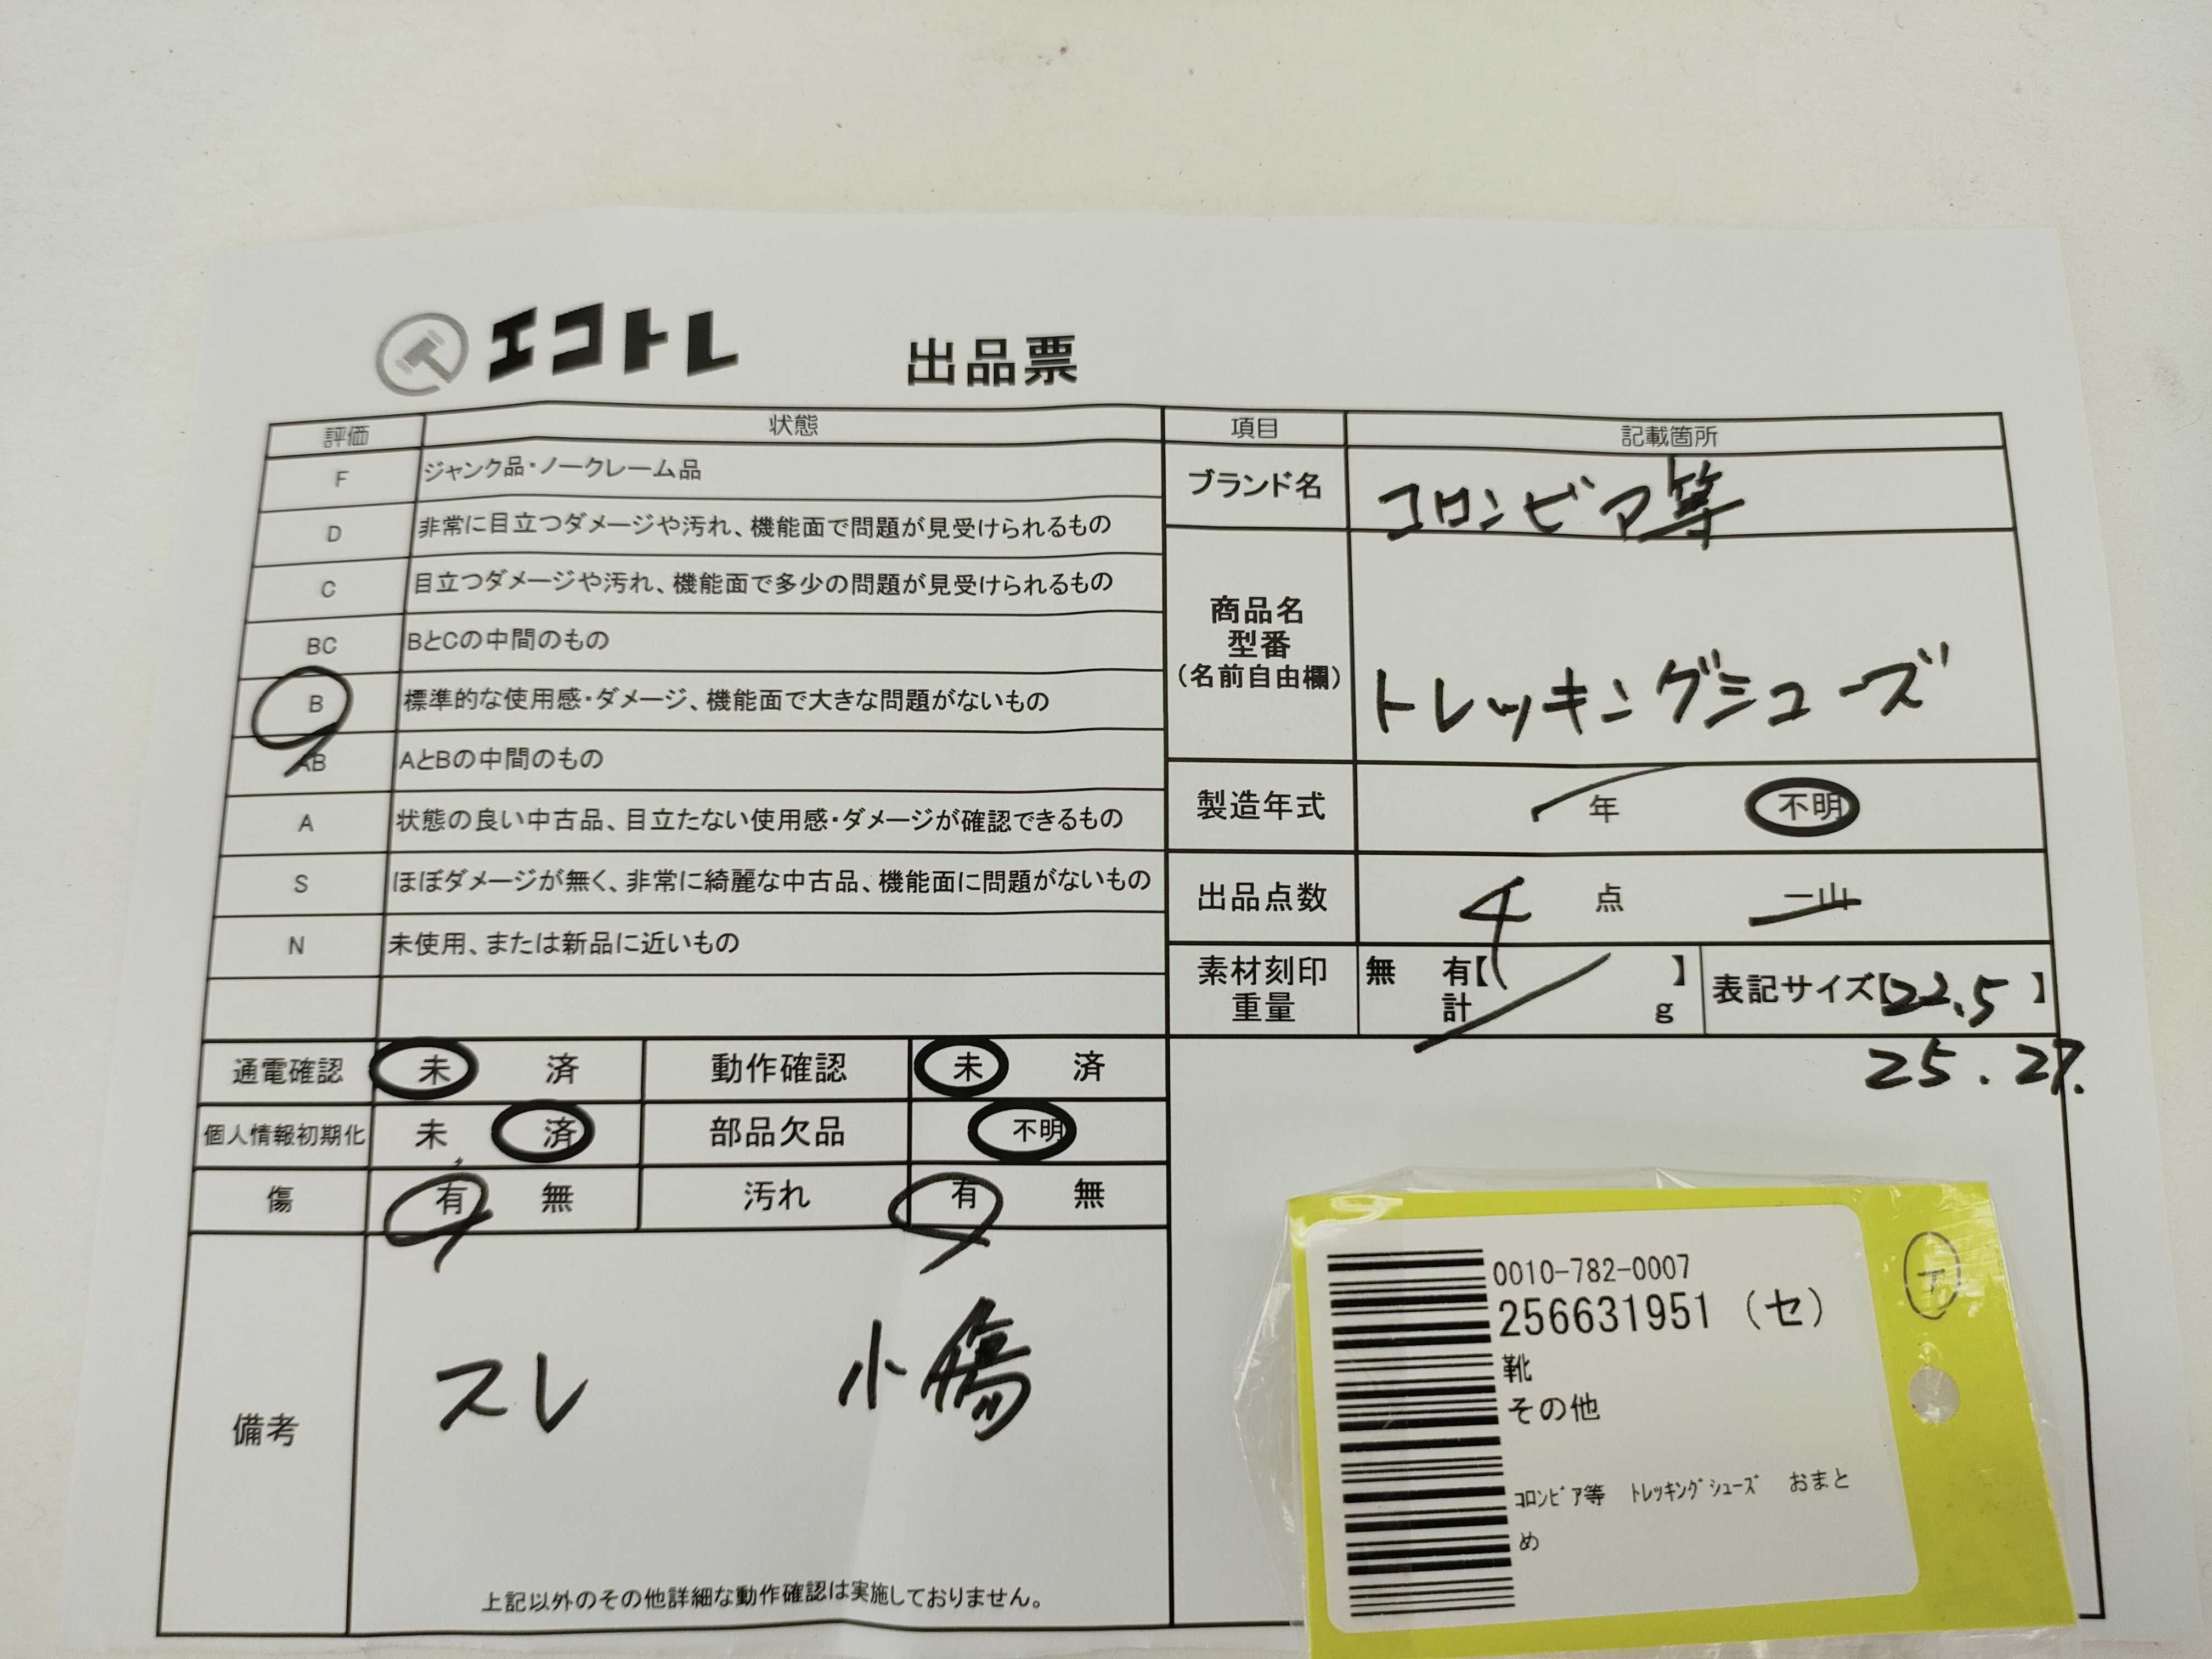 エコトレ 出品票
評価 状態
F ジャンク品・ノークレーム品
D 非常に目立つダメージや汚れ、機能面で問題が見受けられるもの
C 目立つダメージや汚れ、機能面で多少の問題が見受けられるもの
BC BとCの中間のもの
B 標準的な使用感・ダメージ、機能面で大きな問題がないもの
AB AとBの中間のもの
A 状態の良い中古品、目立たない使用感・ダメージが確認できるもの
S ほぼダメージが無く、非常に綺麗な中古品、機能面に問題がないもの
N 未使用、または新品に近いもの
通電確認 未 済 動作確認 未 済
個人情報初期化 未 済 部品欠品 不明
傷 有 無 汚れ 有 無
備考 スレ 小傷
上記以外のその他詳細な動作確認は実施しておりません。
項目 記載箇所
ブランド名 コロンビア等
商品名
型番
(名前自由欄)
トレッキングシューズ
製造年式 年 不明
出品点数 4 点 一山
素材刻印 無 有【 】
重量 計 g
表記サイズ【22.5】
25.27.
0010-782-0007
256631951 (セ)
靴
その他
コロンビア等 トレッキングシューズ おまと
め